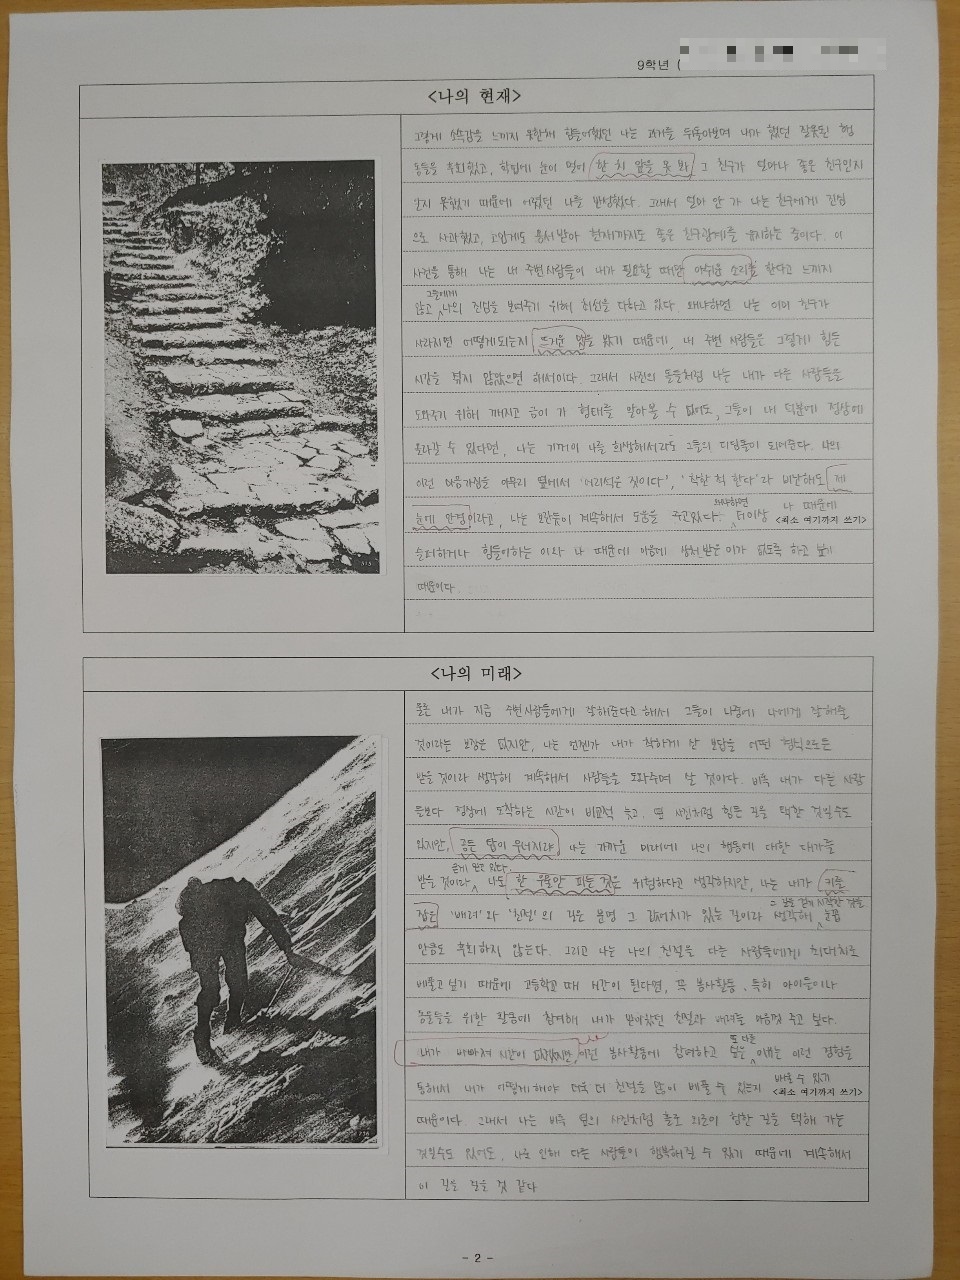 9학년 (
<나의 현재>
그렇게 소속감을 느끼지 못한채 힘들어했던 나는 과거를 뒤돌아보며 내가 했던 잘못된 행
동들을 후회했고, 학업에 눈이 멀어 한 치 앞을 못 봐 그 친구가 얼마나 좋은 친구인지
알지 못했기 때문에 어렸던 나를 반성했다. 그래서 얼마 안 가 나는 친구에게 진심
으로 사과했고, 고맙게도 용서받아 현재까지도 좋은 친구관계를 유지하는 중이다. 이
사건을 통해 나는 내 주변사람들이 내가 필요할 때만 아쉬운 소리를 한다고 느끼지
않고 그들에게 나의 진심을 보여주기 위해 최선을 다하고 있다. 왜냐하면 나는 이미 친구가
사라지면 어떻게되는지 뜨거운 맛을 봤기 때문에, 내 주변 사람들은 그렇게 힘든
시간을 겪지 않았으면 해서이다. 그래서 사진의 돌들처럼 나는 내가 다른 사람들을
도와주기 위해 깨지고 금이 가 형태를 알아볼 수 없어도, 그들이 내 덕분에 정상에
올라갈 수 있다면, 나는 기꺼이 나를 희생해서라도 그들의 디딤돌이 되어준다. 나의
이런 마음가짐을 아무리 옆에서 '어리석은 짓이다', '착한 척 한다'라 비난해도 제
눈에 안경이라고, 나는 보란듯이 계속해서 도움을 주고있다. 왜냐하면 더이상 나 때문에
<최소 여기까지 쓰기>
슬퍼하거나 힘들어하는 이와 나 때문에 마음에 상처 받은 이가 없도록 하고 싶기
때문이다.
<나의 미래>
물론 내가 지금 주변사람들에게 잘해준다고 해서 그들이 나중에 나에게 잘해줄
것이라는 보장은 없지만, 나는 언젠가 내가 착하게 산 보답을 어떤 형식으로든
받을 것이라 생각해 계속해서 사람들을 도와주며 살 것이다. 비록 내가 다른 사람
들보다 정상에 도착하는 시간이 비교적 늦고, 옆 사진처럼 힘든 길을 택한 것일수도
있지만, 공든 탑이 무너지랴 나는 가까운 미래에 나의 행동에 대한 대가를
받을 것이라 굳게 믿고 있다. 나도 한 우물만 파는 것은 위험하다고 생각하지만, 나는 내가 키를
잡은 '배려'와 '친절'의 길은 분명 그 값어치가 있는 길이라 생각해 눈꼽
만큼도 후회하지 않는다. 그리고 나는 나의 친절을 다른 사람들에게 최대치로
베풀고 싶기 때문에 고등학교 때 시간이 된다면, 꼭 봉사활동, 특히 아이들이나
동물들을 위한 활동에 참여해 내가 받아왔던 친절과 배려를 마음껏 주고 싶다.
내가 바빠져 시간이 이런 봉사활동에 참여하고 싶은 또 다른 이유는 이런 경험을
통해서 내가 어떻게 해야 더욱 더 친절을 많이 베풀 수 있는지 배울 수 있기
<최소 여기까지 쓰기>
때문이다. 그래서 나는 비록 옆의 사진처럼 홀로 외로이 험한 길을 택해 가는
것일수도 있어도, 나로 인해 다른 사람들이 행복해질 수 있기 때문에 계속해서
이 길을 걸을 것 같다
- 2 -